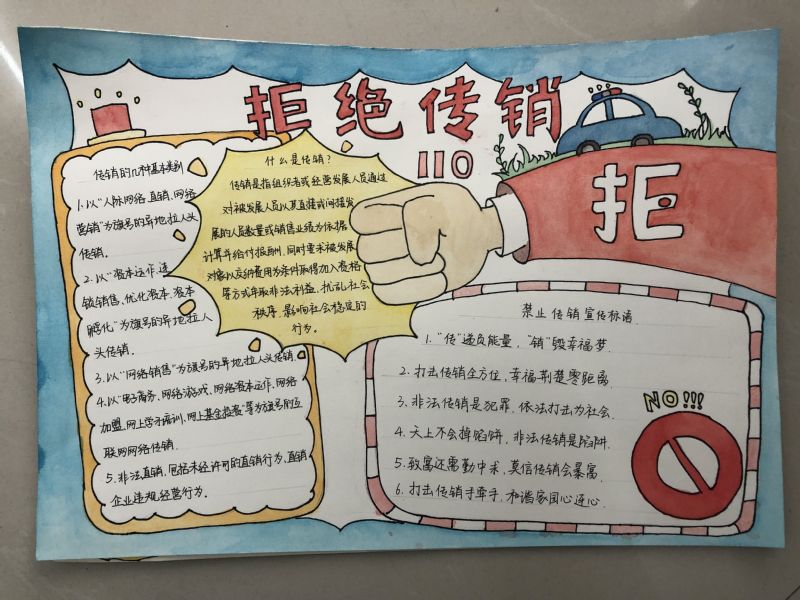 拒绝传销
110
拒
传销的几种基本类别
1.以“人脉网络,直销,网络
营销”为旗号的异地拉人头
传销.
2.以“资本运作,连
锁销售,优化资本,资本
孵化”为旗号的异地拉人
头传销.
3.以“网络销售”为旗号的异地拉人头传销.
4.以“电子商务,网络游戏,网络资本运作,网络
加盟,网上学习培训,网上基金投资”等为旗号的互
联网网络传销.
5.非法直销,包括未经许可的直销行为、直销
企业违规经营行为.
什么是传销?
传销是指组织者或经营发展人员通过
对被发展人员以其直接或间接发
展的人员数量或销售业绩为依据
计算并给付报酬,同时要求被发展
对象以交纳费用为条件取得加入资格
等方式牟取非法利益,扰乱社会
秩序,影响社会稳定的
行为.
禁止传销宣传标语.
1.“传”递负能量,“销”毁幸福梦.
2.打击传销全方位,幸福荆楚零距离.
3.非法传销是犯罪,依法打击为社会.
4.天上不会掉馅饼,非法传销是陷阱.
5.致富还需勤中求,莫信传销会暴富.
6.打击传销手牵手,和谐家园心连心.
NO!!!